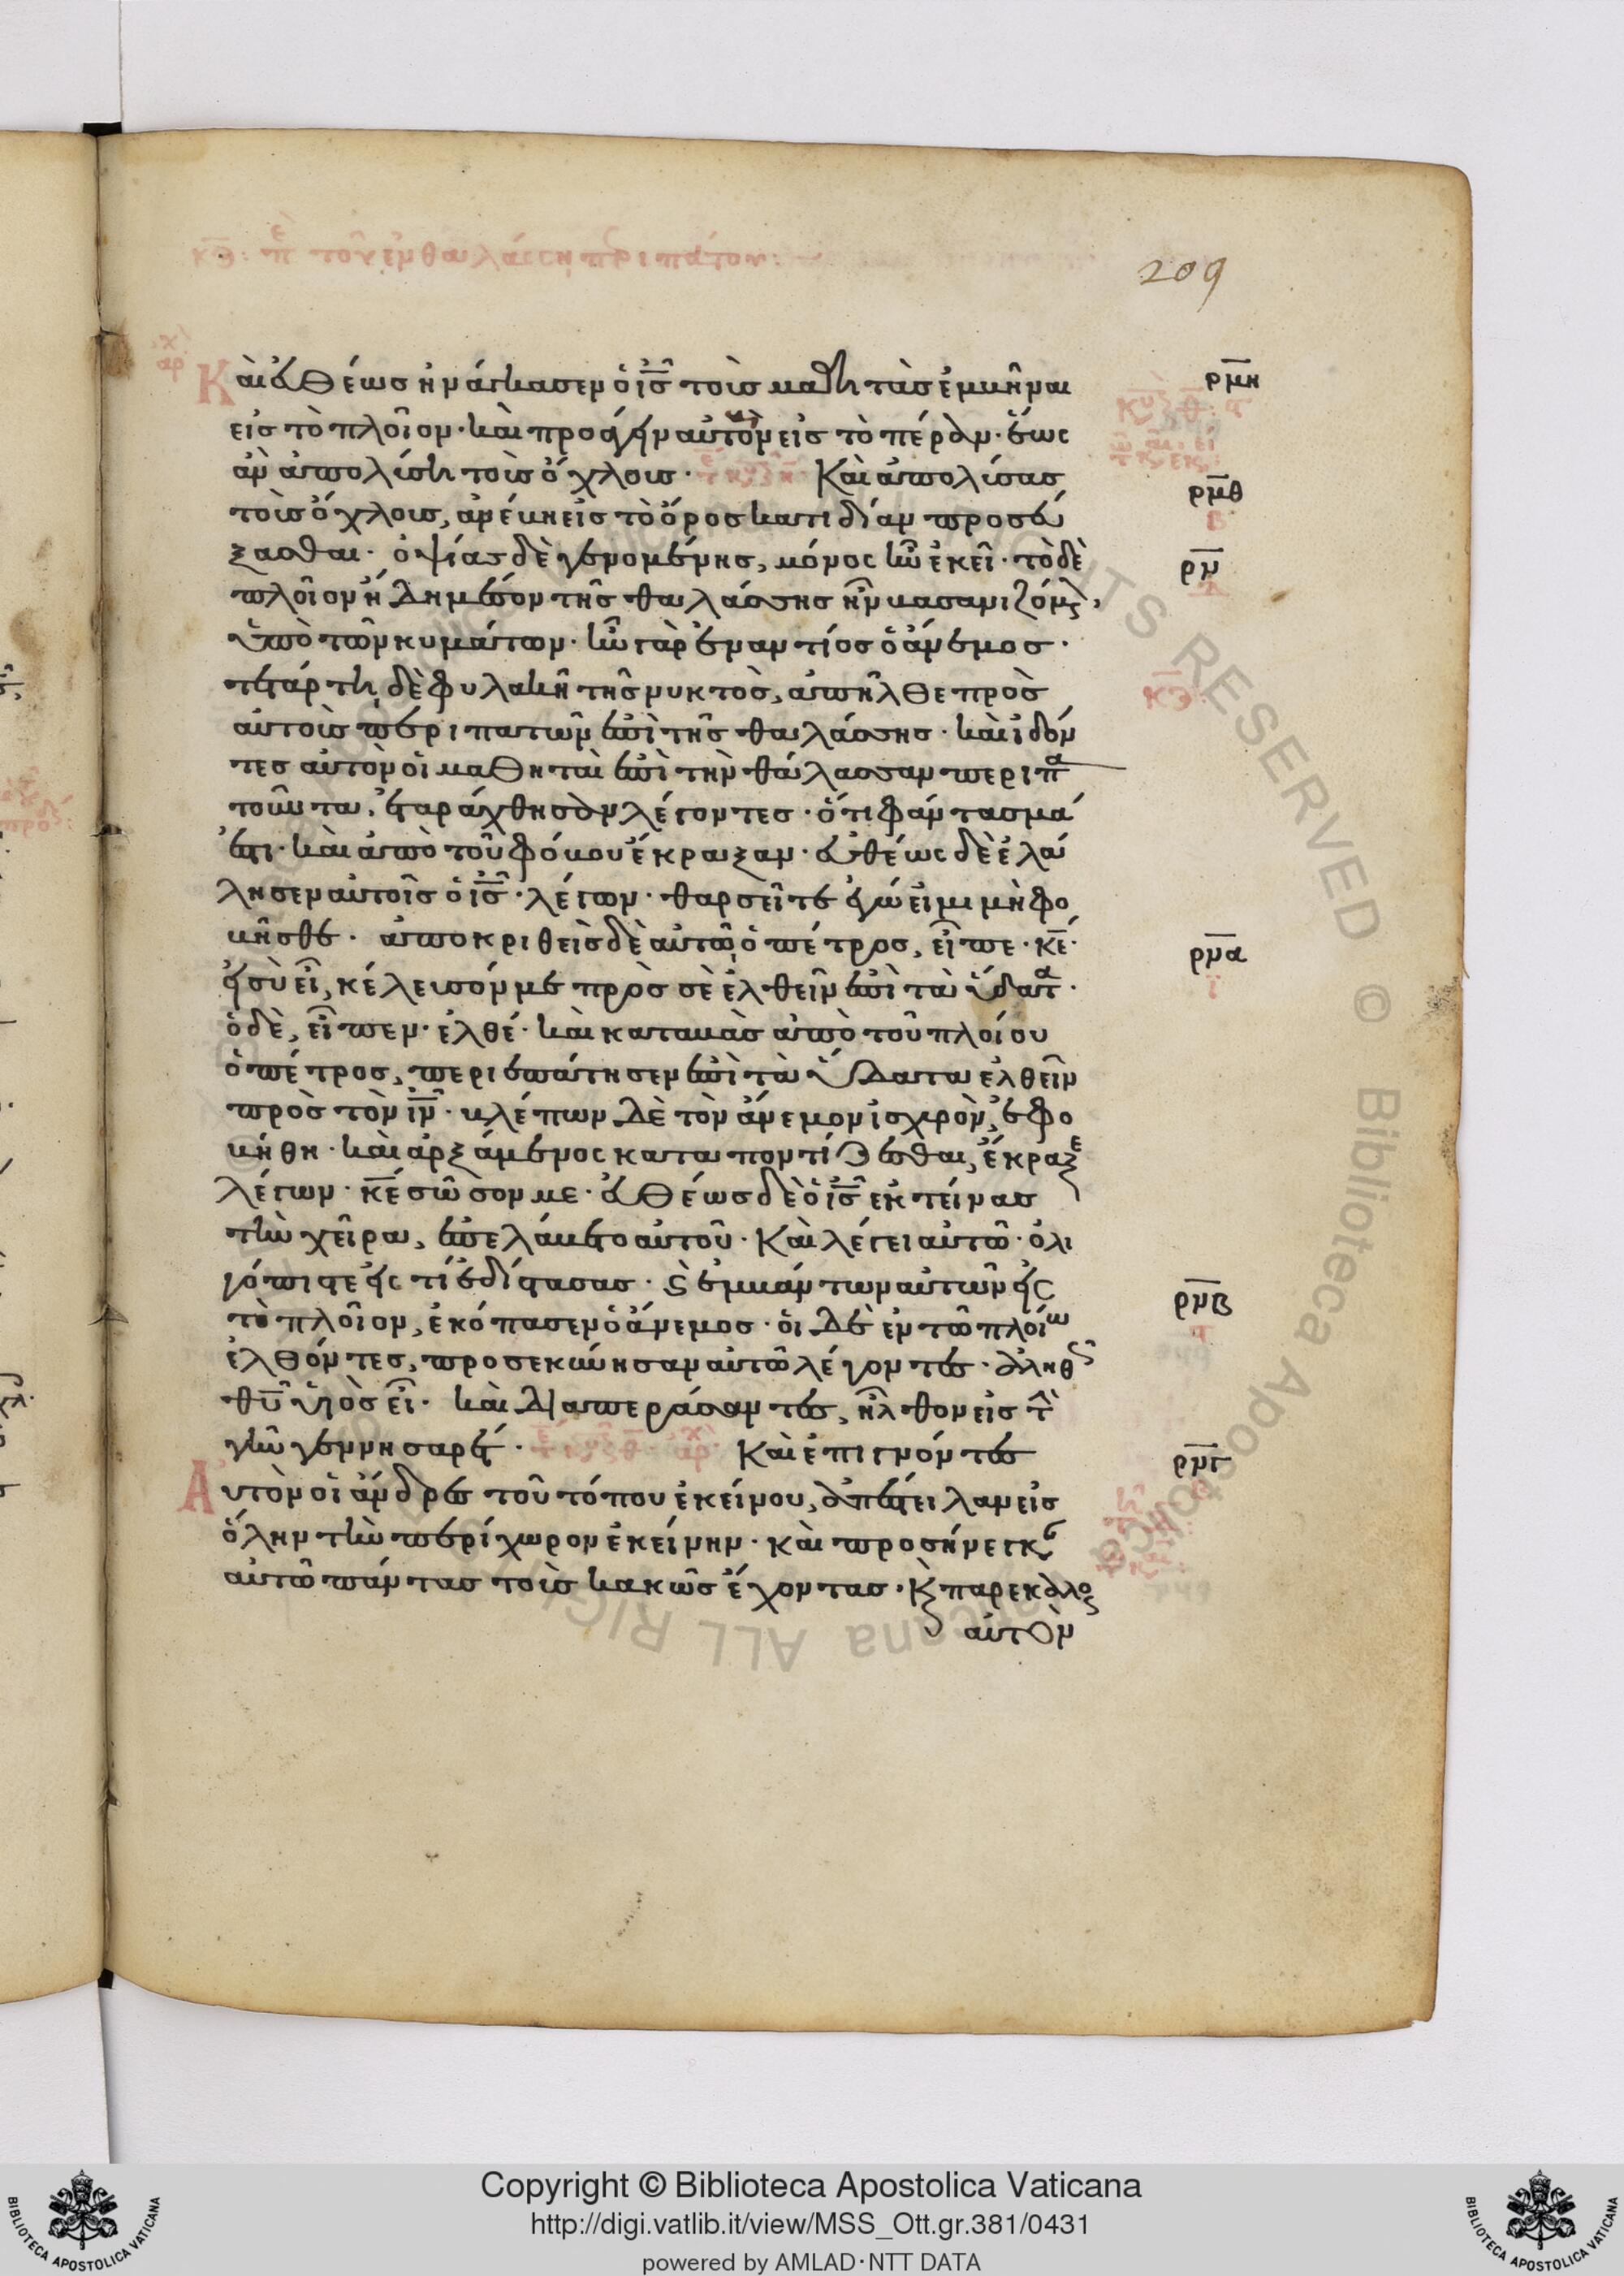 κθ: πε τοῦ ἐν θαλάσσῃ περιπάτου:
209
Καὶ εὐθέως ἠνάγκασεν ὁ ις τοὺς μαθητὰς ἐμβῆναι
εἰς τὸ πλοῖον· καὶ προάγειν αὐτὸν εἰς τὸ πέραν· ἕως
ἂν ἀπολύσῃ τοὺς ὄχλους· Καὶ ἀπολύσας
τοὺς ὄχλους, ἀνέβη εἰς τὸ ὄρος κατιδίαν προσεύ
ξασθαι· ὀψίας δὲ γενομένης, μόνος ἦν ἐκεῖ· τὸ δὲ
πλοῖον ἤδη μέσον τῆς θαλάσσης ἦν βασανιζόμεν,
ὑπὸ τῶν κυμάτων· ἦν γὰρ ἐναντίος ὁ ἄνεμος·
τετάρτη δὲ φυλακῇ τῆς νυκτὸς, ἀπῆλθε πρὸς
αὐτοὺς περιπατῶν ἐπὶ τῆς θαλάσσης· καὶ ἰδόν
τες αὐτὸν οἱ μαθηταὶ ἐπὶ τὴν θάλασσαν περιπα
τοῦντα, ἐταράχθησαν λέγοντες· ὅτι φάντασμά
ἐστι· καὶ ἀπὸ τοῦ φόβου ἔκραξαν· εὐθέως δὲ ἐλά
λησεν αὐτοῖς ὁ ις· λέγων· θαρσεῖτε ἐγώ εἰμι μὴ φο
βῆσθε· ἀποκριθεὶς δὲ αὐτῷ ὁ πέτρος, εἶπε· κε·
εἰ σὺ εἶ, κέλευσόν με πρὸς σὲ ἐλθεῖν ἐπὶ τὰ ὕδατα·
ὁ δὲ, εἶπεν· ἐλθέ· καὶ καταβὰς ἀπὸ τοῦ πλοίου
ὁ πέτρος, περιεπάτησεν ἐπὶ τὰ ὕδατα ἐλθεῖν
πρὸς τὸν ιν· βλέπων δὲ τὸν ἄνεμον ἰσχυρὸν, ἐφο
βήθη· καὶ ἀρξάμενος καταποντίζεσθαι, ἔκραξε
λέγων· κε σῶσον με· εὐθέως δὲ ὁ ις ἐκτείνας
τὴν χεῖρα, ἐπελάβετο αὐτοῦ· Καὶ λέγει αὐτῷ· ὀλι
γόπιστε εἰς τί ἐδίστασας· ϛ ἐμβάντων αὐτῶν εἰς
τὸ πλοῖον, ἐκόπασεν ὁ ἄνεμος· οἱ δὲ ἐν τῷ πλοίω
ἐλθόντες, προσεκύνησαν αὐτῷ λέγοντες· ἀληθῶς
θυ υἱὸς εἶ· καὶ διαπεράσαντες, ἦλθον εἰς τὴν
γῆν γεννησαρέτ· Καὶ ἐπιγνόντες
Αὐτὸν οἱ ἄνδρες τοῦ τόπου ἐκείνου, ἀπέστειλαν εἰς
ὅλην τὴν περίχωρον ἐκείνην· καὶ προσήνεγκ
αὐτῷ πάντας τοὺς κακῶς ἔχοντας· Κ παρεκάλουν
αὐτὸν
ρμη
ρμθ
ρν
κθ
ρνα
ρνβ
ρνγ
Copyright © Biblioteca Apostolica Vaticana
http://digi.vatlib.it/view/MSS_Ott.gr.381/0431
powered by AMLAD·NTT DATA